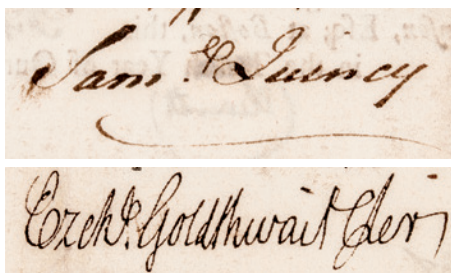 Sam.l Quincy
Ezek.l Goldthwait Cler